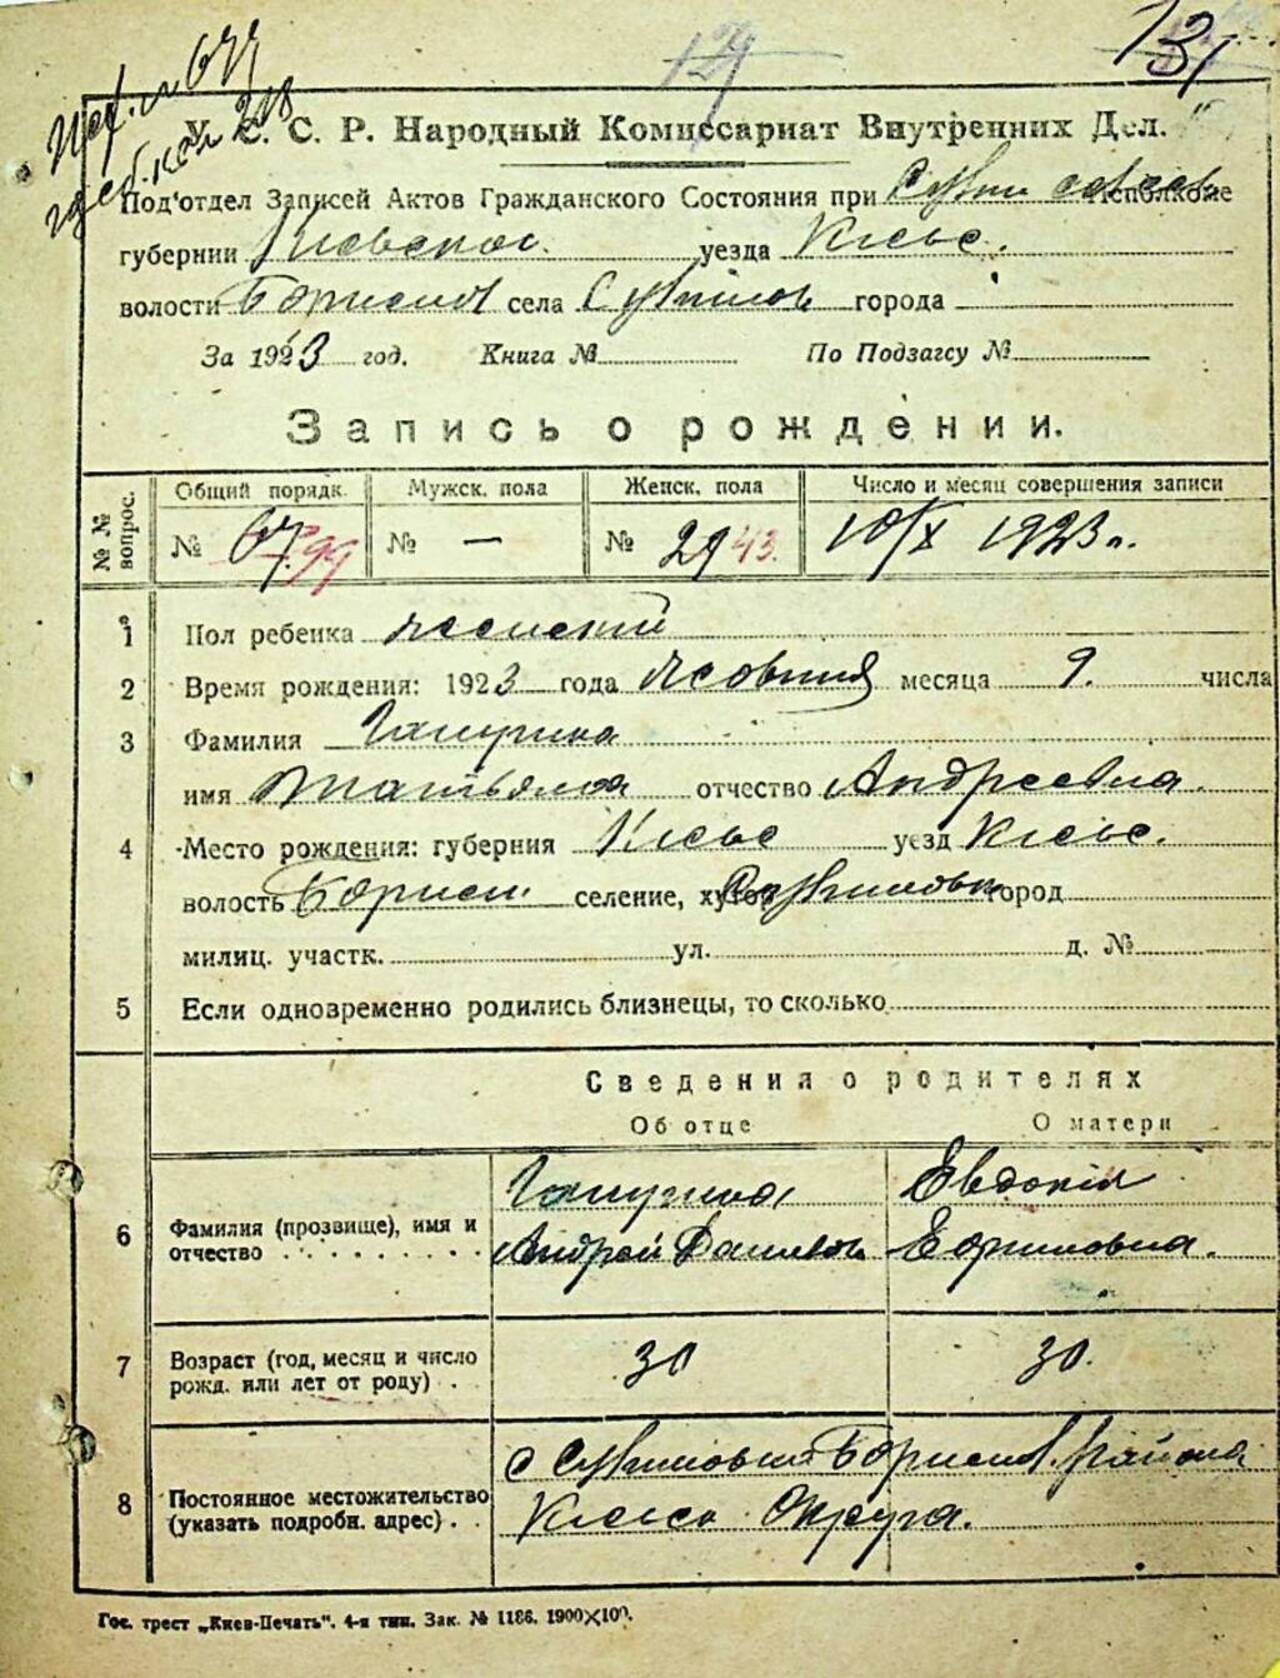 131
У. С. С. Р. Народный Комиссариат Внутренних Дел.
Под'отдел Записей Актов Гражданского Состояния при Исполкоме
губернии Киевской уезда Киевс.
волости Борисп села города
За 1923 год. Книга № По Подзагсу №
Запись о рождении.
№ № вопрос. Общий порядк. Мужск. пола Женск. пола Число и месяц совершения записи
№ 67. 99 № — № 29 43. 10/X 1923 г.
1 Пол ребенка женский
2 Время рождения: 1923 года Жовтня месяца 9. числа
3 Фамилия
имя Татьяна отчество Андреевна
4 Место рождения: губерния Киевс уезд Киевс.
волость Борисп. селение, хутор город
милиц. участк. ул. д. №
5 Если одновременно родились близнецы, то сколько
Сведения о родителях
Об отце О матери
6 Фамилия (прозвище), имя и отчество Андрей Данилов Евдокія
7 Возраст (год, месяц и число рожд. или лет от роду) 30 30.
8 Постоянное местожительство (указать подробн. адрес) с района
Киевс Округа.
Гос. трест „Киев-Печать". 4-я тип. Зак. № 1186. 1900×100.